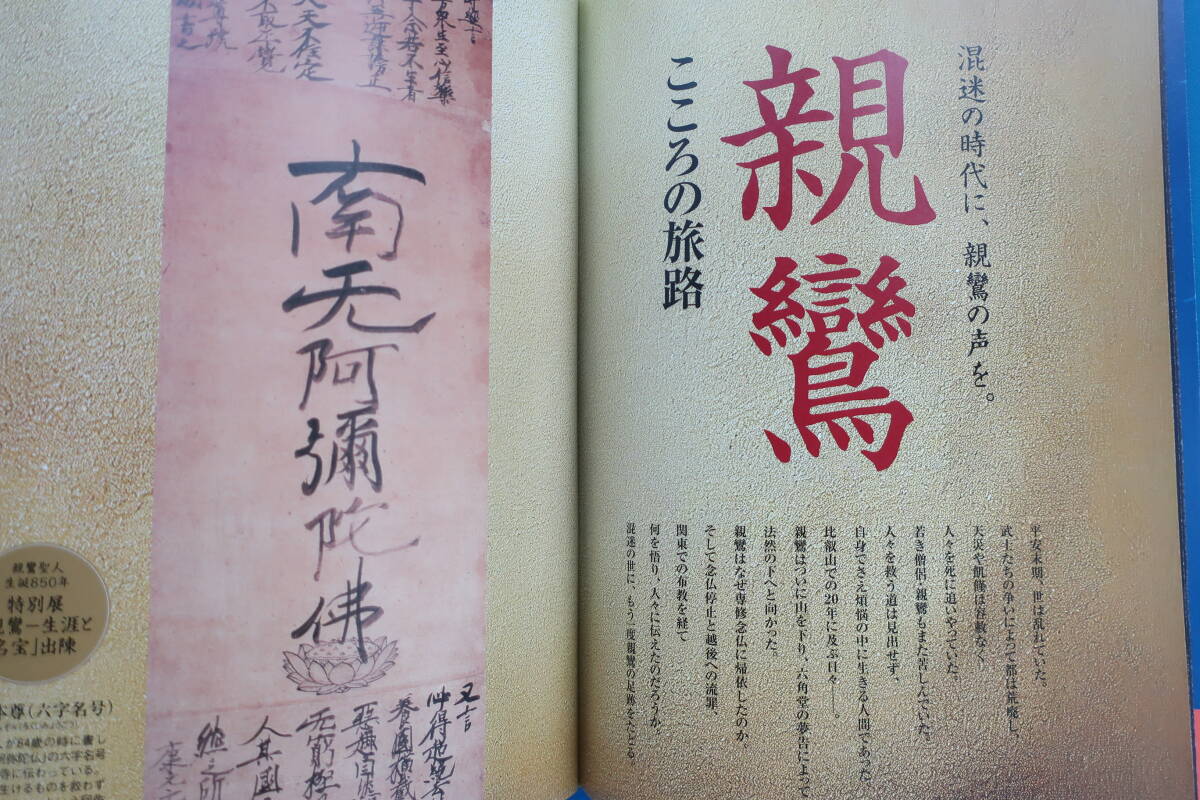 混迷の時代に、親鸞の声を。
親鸞
こころの旅路
平安末期、世は乱れていた。
武士たちの争いによって都は荒廃し、
天災や飢饉は容赦なく
人々を死に追いやっていた。
若き僧侶・親鸞もまた苦しんでいた。
人々を救う道は見出せず、
自身でさえ煩悩の中に生きる人間であった。
比叡山での20年に及ぶ日々――。
親鸞はついに山を下り、六角堂の夢告によって
法然の下へと向かった。
親鸞はなぜ専修念仏に帰依したのか。
そして念仏停止と越後への流罪、
関東での布教を経て
何を悟り、人々に伝えたのだろうか。
混迷の世に、もう一度親鸞の足跡をたどる。
南无阿彌陀佛
又言
必得超絶去
養國横截
無窮極
人其國
親鸞聖人
生誕850年
特別展
親鸞―生涯と
名宝」出陳
本尊(六字名号)
が84歳の時に書し
阿弥陀仏」の六字名号
寺に伝わっている。
生けるものを救わず